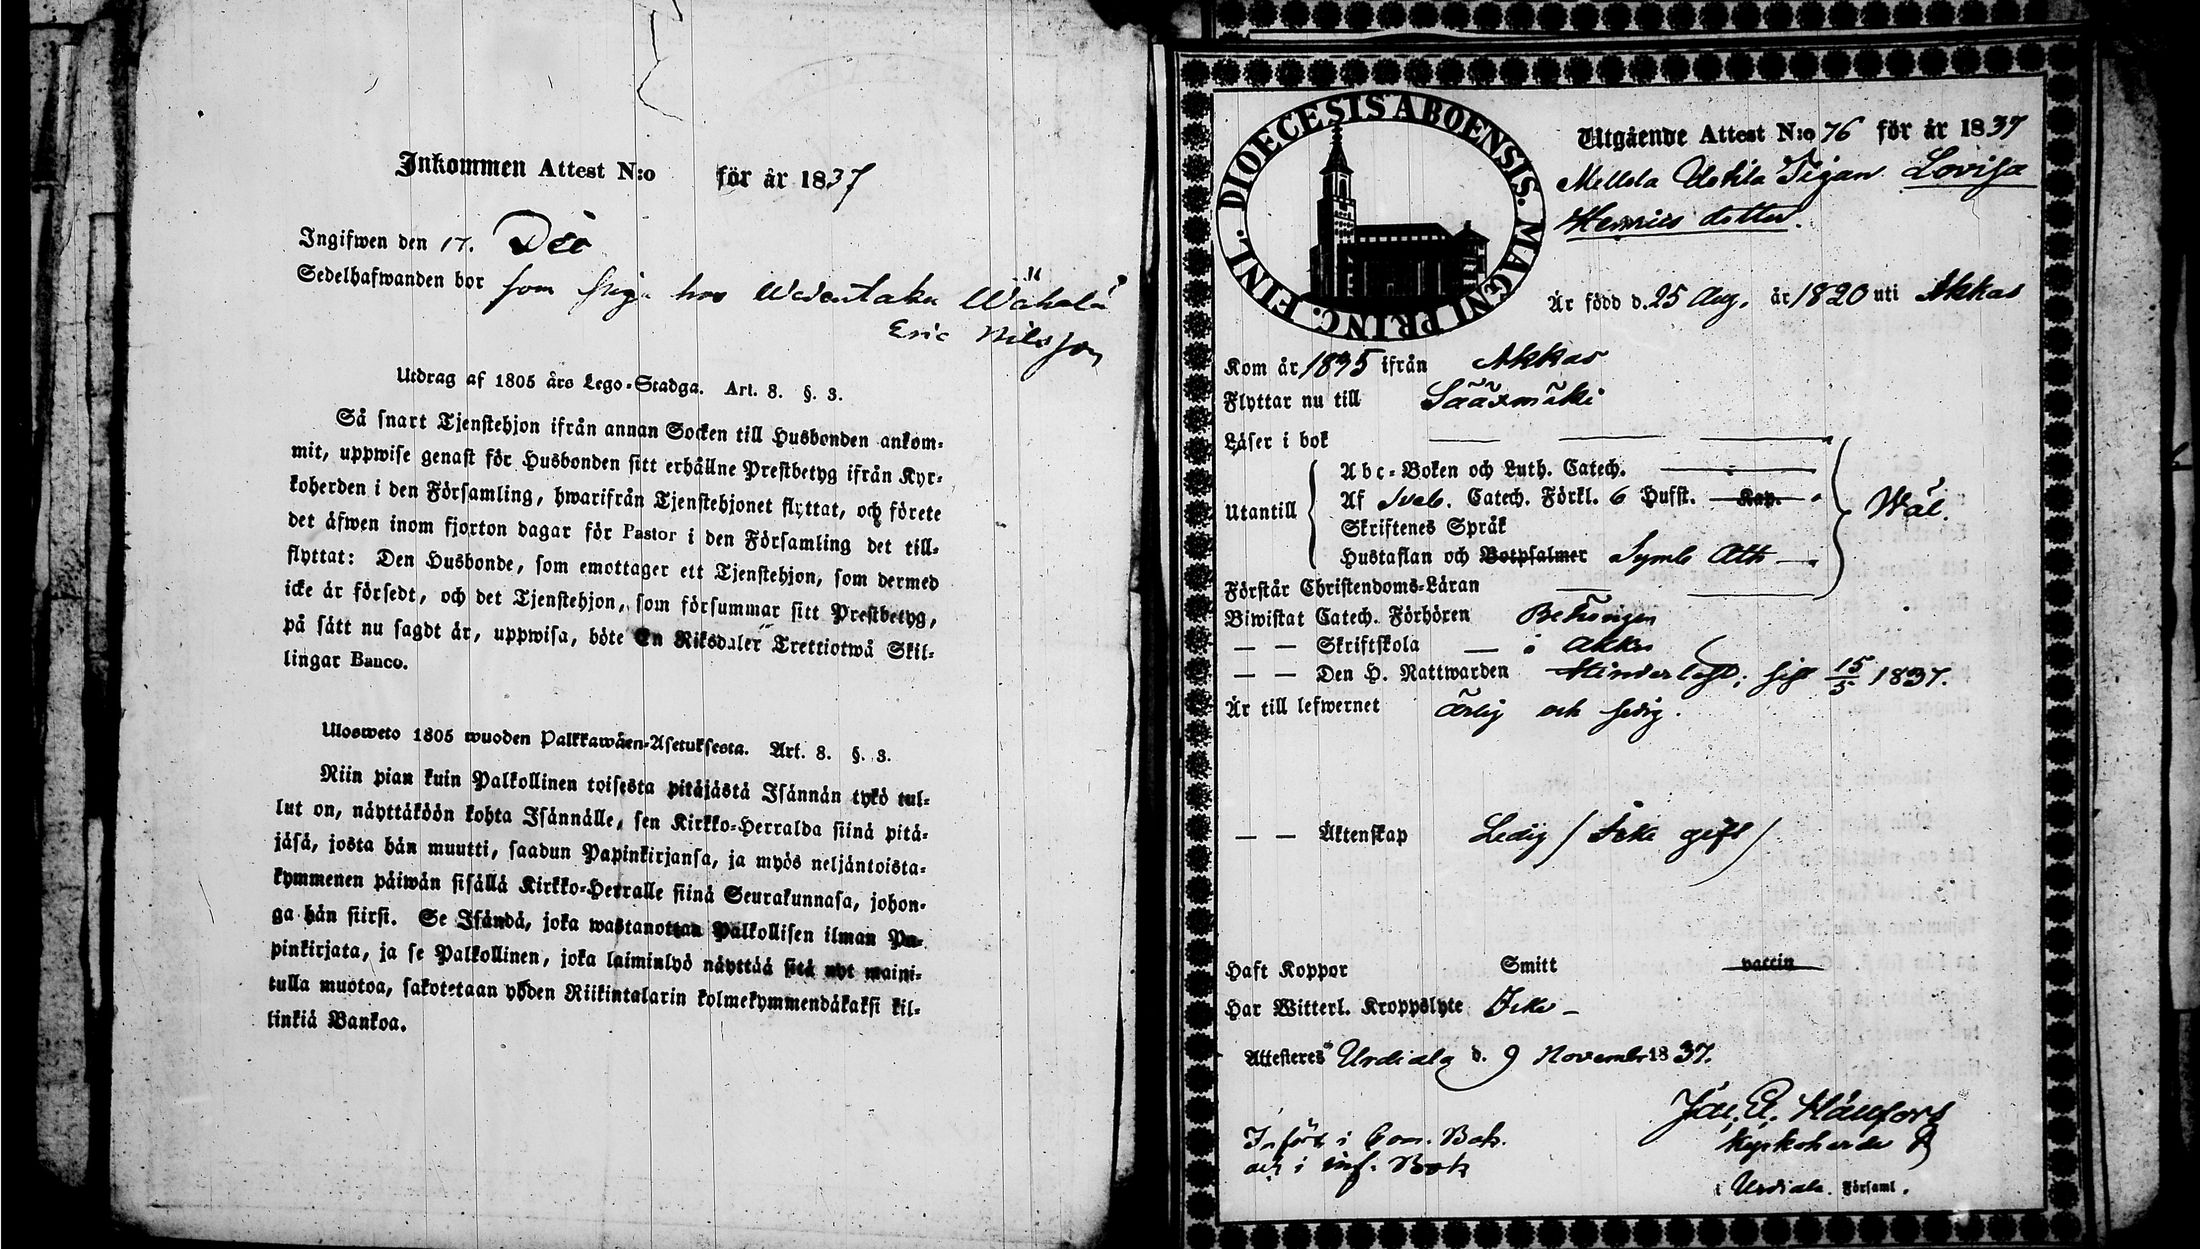 Inkommen Attest N:o för år 1837
Ingifwen den 17. Dec
Sedelhafwanden bor som piga hos Wedentaka Wähälä
Eric Nilsson
Utdrag af 1805 års Lego-Stadga. Art. 8. §. 3.
Så snart Tjenstehjon ifrån annan Socken till Husbonden ankom-
mit, uppwise genast för Husbonden sitt erhållne Prestbetyg ifrån Kyr-
koherden i den Församling, hwarifrån Tjenstehjonet flyttat, och förete
det äfwen inom fjorton dagar för Pastor i den Församling det till-
flyttat: Den Husbonde, som emottager ett Tjenstehjon, som dermed
icke är försedt, och det Tjenstehjon, som försummar sitt Prestbetyg,
på sätt nu sagdt är, uppwisa, böte En Riksdaler Trettiotwå Skil-
lingar Banco.
Ulosweto 1805 wuoden Palkkawäen-Asetuksesta. Art. 8. §. 3.
Niin pian kuin Palkollinen toisesta pitäjästä Isännän tykö tul-
lut on, näyttäköön kohta Isännälle, sen Kirkko-Herralda siinä pitä-
jäsä, josta hän muutti, saadun Papinkirjansa, ja myös neljäntoista-
kymmenen päiwän sisällä Kirkko-Herralle siinä Seurakunnasa, johon-
ga hän siirsi. Se Isändä, joka wastanottaa Palkollisen ilman Pa-
pinkirjata, ja se Palkollinen, joka laiminlyö näyttää sitä nyt maini-
tulla muotoa, sakotetaan yhden Riikintalarin kolmekymmendäkaksi kil-
linkiä Bankoa.
DIOECESIS ABOENSIS. MAGNI PRINC. FINL.
Utgående Attest N:o 76 för år 1837
Mellola Uotila Pigan Lovisa
Henrics dotter.
Är född d. 25 Aug. år 1820 uti Akkas
Kom år 1835 ifrån Akkas
Flyttar nu till Sääxmäki
Läser i bok
Abc-Boken och Luth. Catech.
Utantill Af Sveb. Catech. Förkl. 6 Hufst. Kap.
Wäl.
Skriftenes Språk
Hustaflan och Botpsalmer Symb Ath
Förstår Christendoms-Läran
Biwistat Catech. Förhören Behörigen
— — Skriftskola — i Akkas
— — Den H. Nattwarden sist 15/5 1837.
Är till lefwernet Ärlig och sedig.
— — Äktenskap Ledig (Icke gift)
Haft Koppor Smitt vaccin
Har Witterl. Kroppslyte Icke —
Attesteres Urdiala d. 9 November 1837.
Införd i Com. Bok.
och i inf. Bok
Kyrkoherde
i Urdiala Församl.